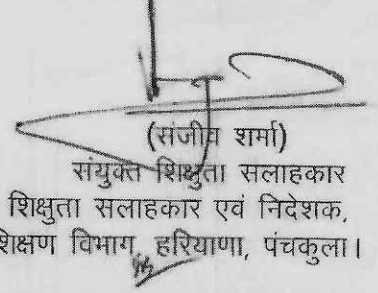 (संजीव शर्मा)
संयुक्त शिक्षुता सलाहकार
शिक्षुता सलाहकार एवं निदेशक,
शिक्षण विभाग, हरियाणा, पंचकुला।